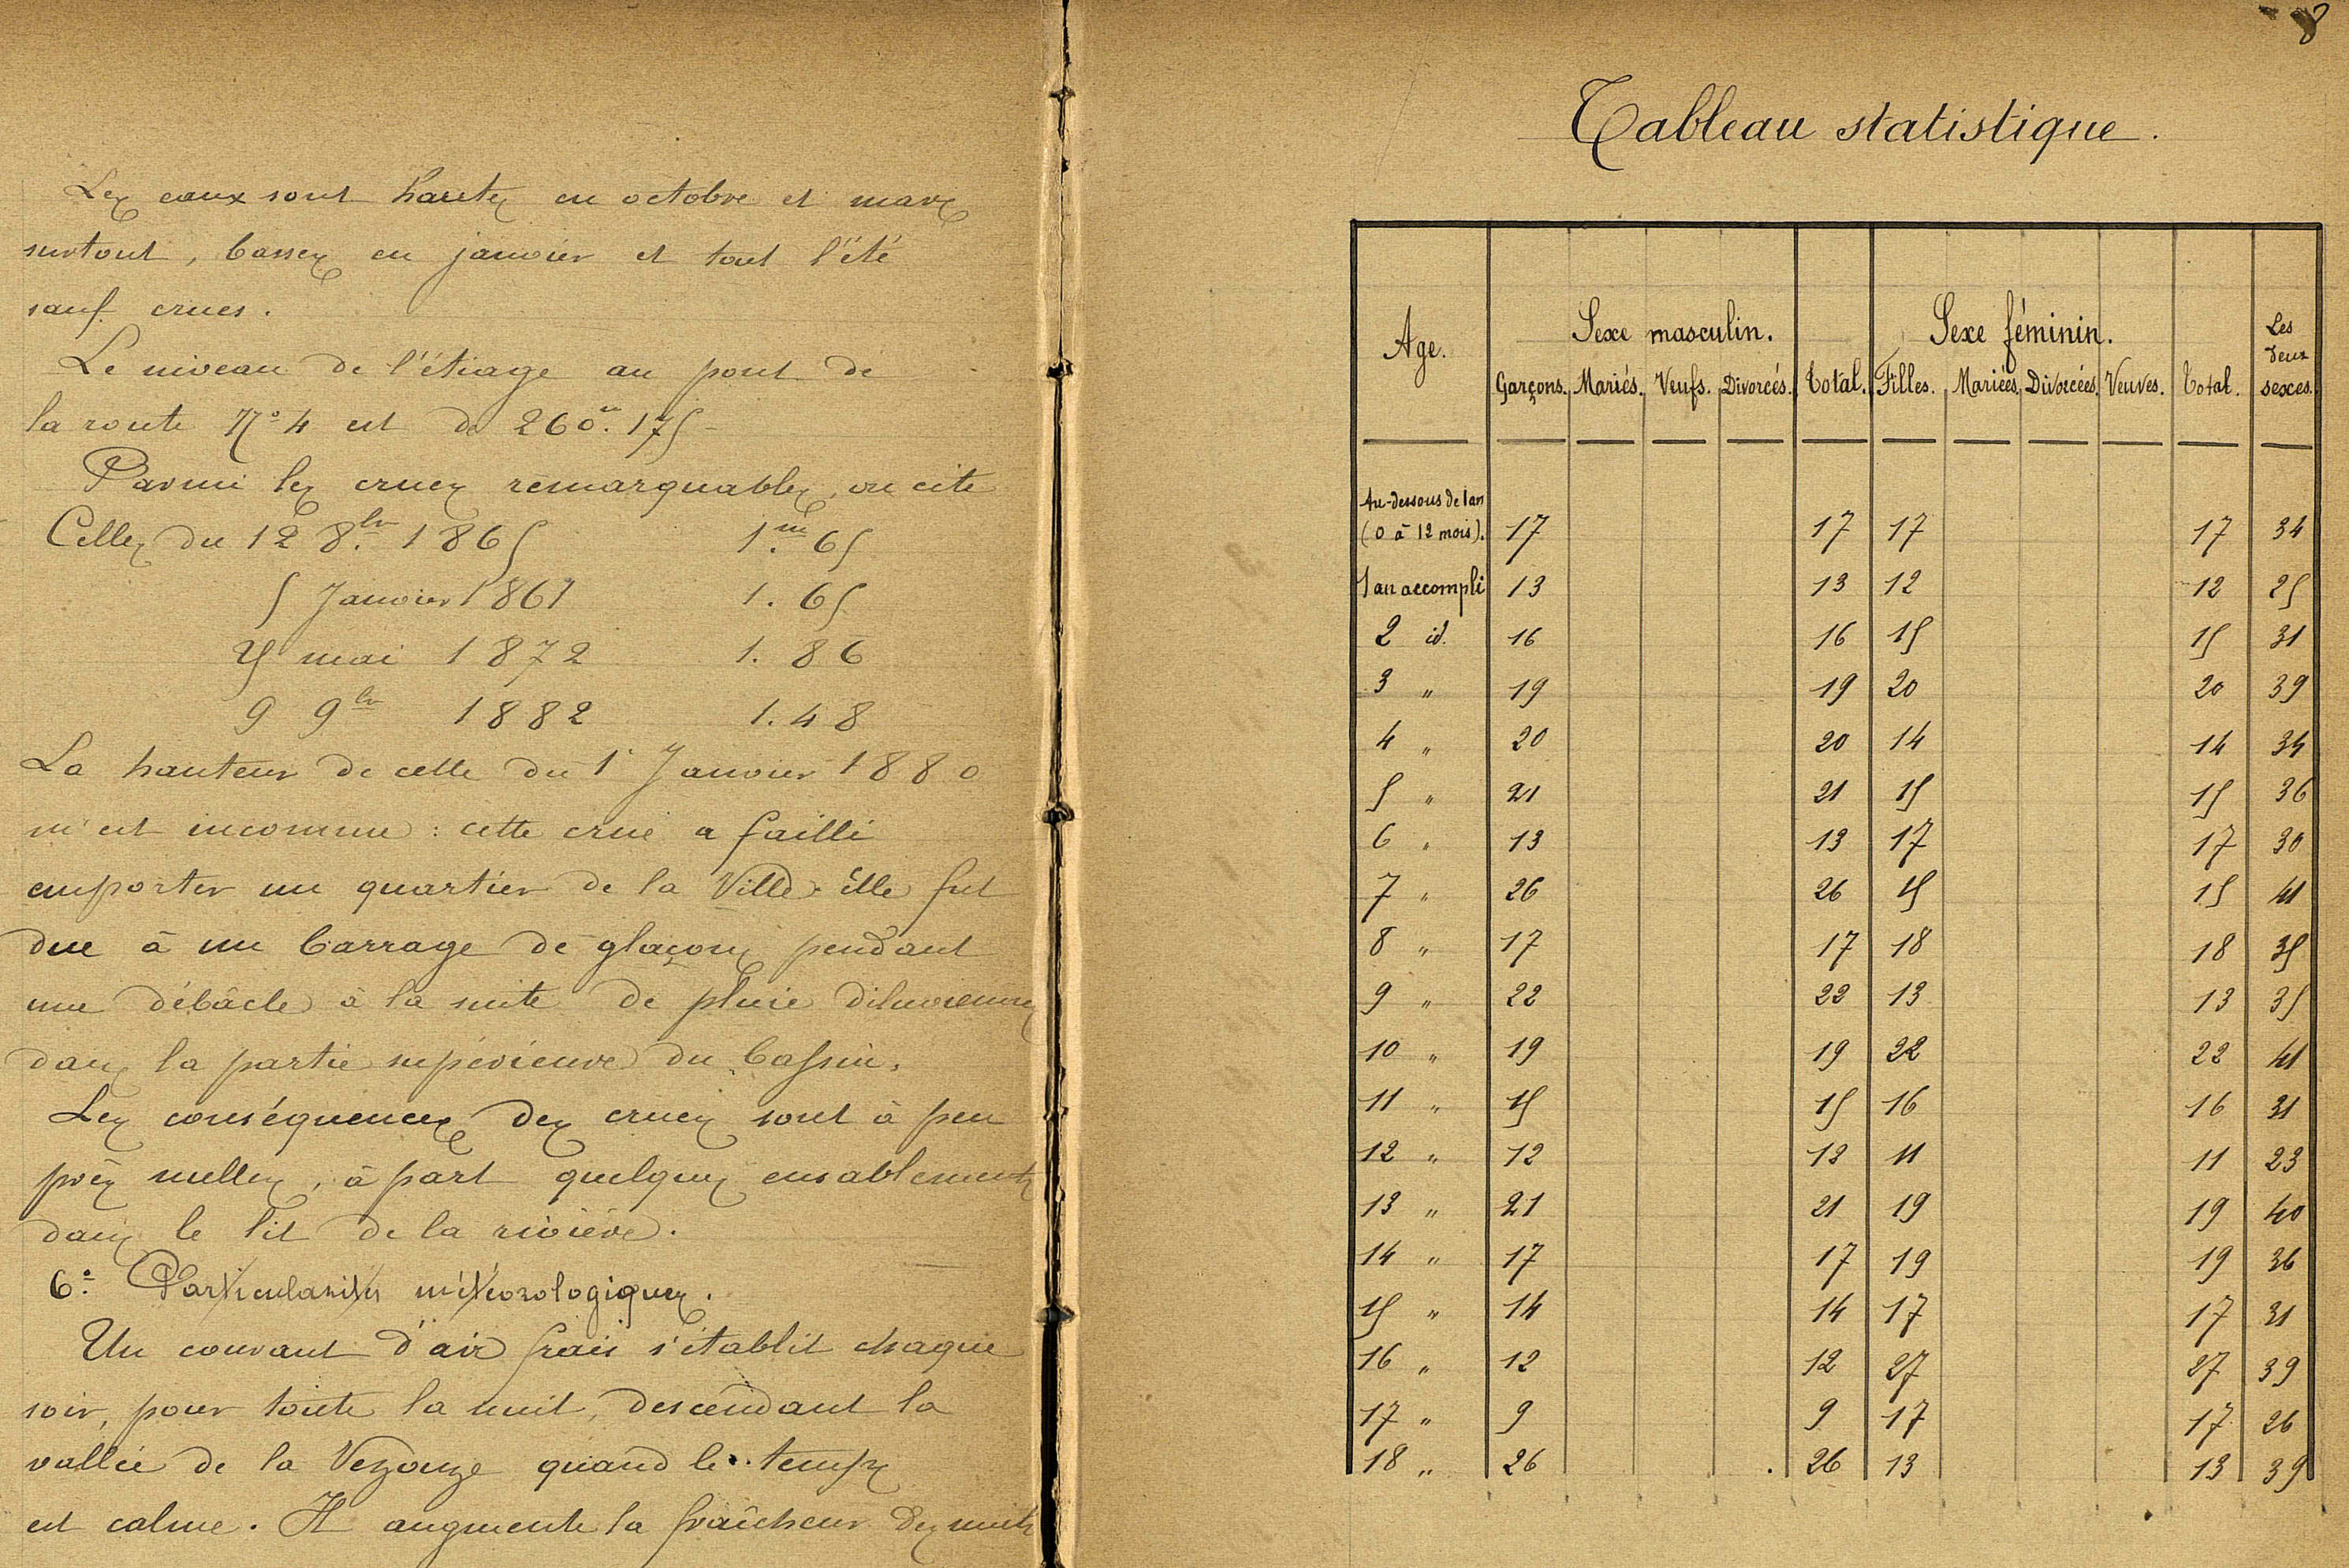 Les eaux sont hautes en octobre et mars
surtout, basses en janvier et tout l'été
sauf crues.
Le niveau de l'étiage au pont de
la route N° 4 est de 260m. 175
Parmi les crues remarquables, on cite
Celles du 12 8bre 1865 1.m 65
5 Janvier 1867 1. 65
25 mai 1872 1. 86
9 9bre 1882 1. 48
La hauteur de celle du 1r Janvier 1880
m'est inconnue : cette crue a failli
emporter un quartier de la Ville. Elle fut
due à un barrage de glaçons pendant
une débâcle à la suite de pluies diluviennes
dans la partie supérieure du bassin.
Les conséquences des crues sont à peu
près nulles, à part quelques ensablements
dans le lit de la rivière.
6° Particularités météorologiques.
Un courant d'air frais s'établit chaque
soir, pour toute la nuit, descendant la
vallée de la Vezouze quand le temps
est calme. Il augmente la fraîcheur des nuits
8
Tableau statistique.
Age. Sexe masculin. Sexe féminin. Les deux sexes.
Garçons. Mariés. Veufs. Divorcés. Total. Filles. Mariées. Divorcées. Veuves. Total.
Au-dessous de 1 an
(0 à 12 mois). 17 17 17 17 34
1 an accompli 13 13 12 12 25
2 id. 16 16 15 15 31
3 " 19 19 20 20 39
4 " 20 20 14 14 34
5 " 21 21 15 15 36
6 " 13 13 17 17 30
7 " 26 26 15 15 41
8 " 17 17 18 18 35
9 " 22 22 13 13 35
10 " 19 19 22 22 41
11 " 15 15 16 16 31
12 " 12 12 11 11 23
13 " 21 21 19 19 40
14 " 17 17 19 19 36
15 " 14 14 17 17 31
16 " 12 12 27 27 39
17 " 9 9 17 17 26
18 " 26 26 13 13 39